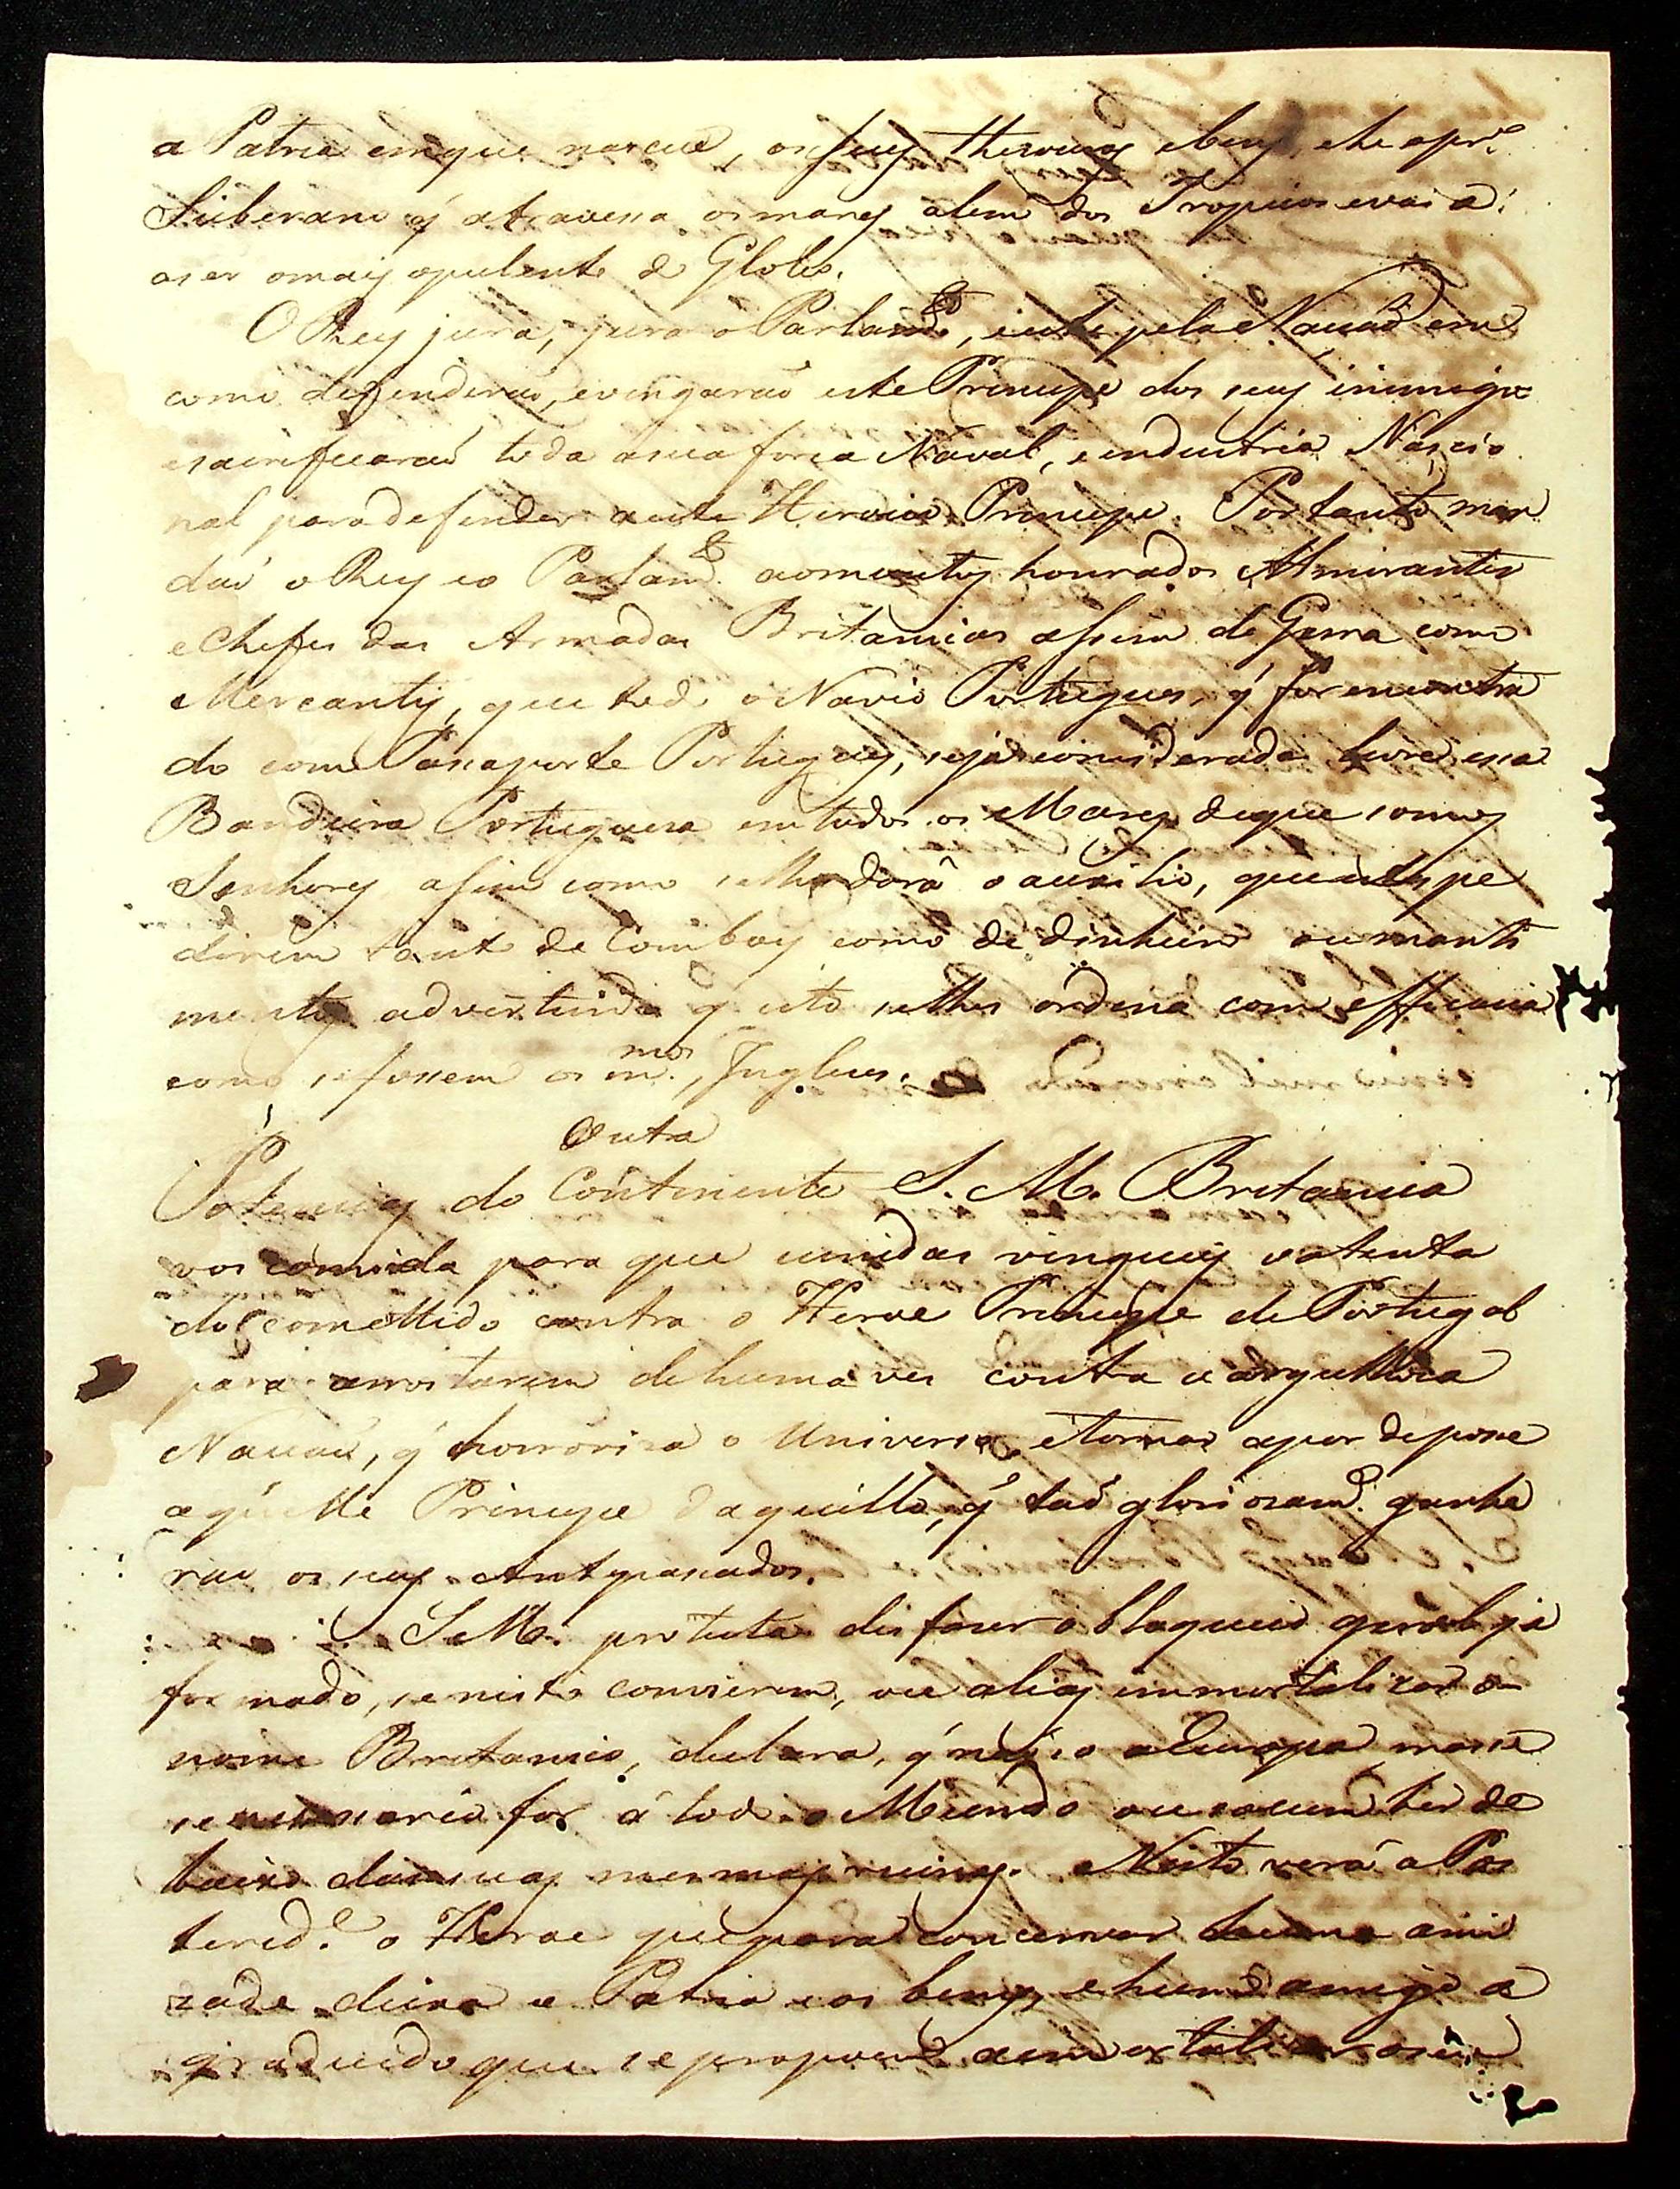 a Patria emque nasceu, os seus thesouros e bens, he o pr.º
Suberano q̃ atravessa os mares alem dos Tropicos e vai a
a ser o mais opulento do Globo.
O Rey jura, jura o Parlamto, e este pela Naçaõ em
como defenderaõ, e vingaraõ este Principe dos seus inimigos
e sacrificaraõ toda a sua força Naval, e industria Nascio
nal para defender a este Heroico Principe. Portanto man
daõ o Rey e o Parlamto aos muitos honrados Almirantes
e Chefes das Armadas Britanicas assim de Guerra como
Mercantis, que todo o Navio Portugues, q̃ for encontra
do com Passaporte Portugues, seja considerado livre essa
Bandeira Portuguesa em todos os Mares de que somos
Senhores assim como se lhe dará o auxilio, que elles pe
direm tanto de Comboy como de dinheiro ou manti
mentos advertindo q̃ isto se lhes ordena com efficacia
como se fossem os mmos Ingleses.
Outra
Potencias do Continente S. M. Britanica
vos convida para que unidas vingueis o atenta
do comettido contra o Heroe Principe de Portugal
para arrostarem de huma ves contra a orgulhosa
Naçaõ, q̃ horrorisa o Universo, e tornar a por de posse
aquelle Principe daquillo, q̃ taõ gloriosamte ganha
raõ os seus Antepassados.
S. M. protesta disfazer o bloqueio geral já
formado, se nisto convierem, ou alias immortalizar o
nome Britanico, declara, q̃ naõ só a Europa mas se
se necessario for a todo o Mundo ou sucumbir de
baixo das suas mesmas ruinas. Nisto verá a Pos
terid.e o Heroe que para concervar huma ami
zade deixa a Patria e os bens, e hum amigo a
gradecido que se propoem a immortalisar o seu